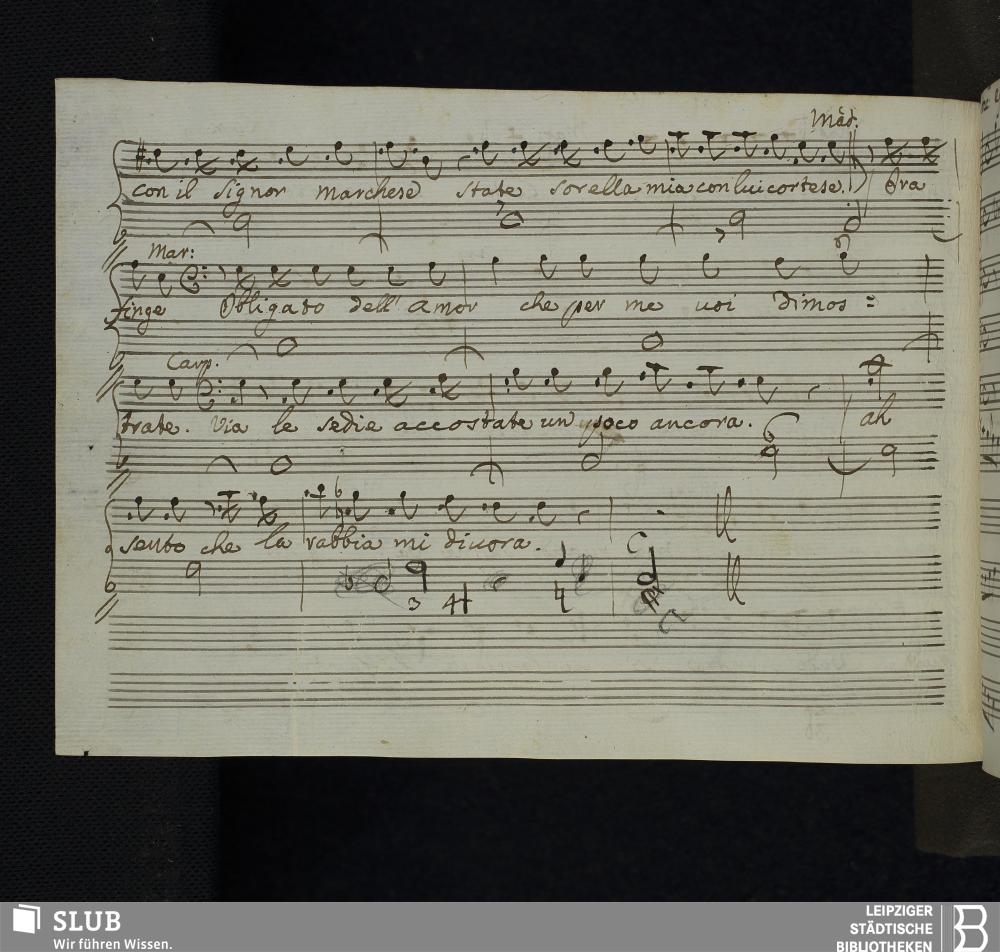 Mad.
con il Signor Marchese state sorella mia con lui cortese. Ora
Mar:
finge Obligato dell' Amor che per me voi dimos =
Cavp.
trate. Via le sedie accostate un poco ancora. ah
6
sento che la rabbia mi divora.
3 4
SLUB
Wir führen Wissen.
LEIPZIGER
STÄDTISCHE
BIBLIOTHEKEN